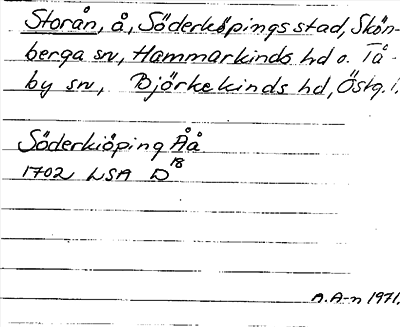 Storån, å, Söderköpings stad, Skön-
berga sn, Hammarkinds hd o. Tå-
by sn, Björkekinds hd, Östg. l.
Söderkiöping Åå
1702 LSA D 18
A.A-n 1971.